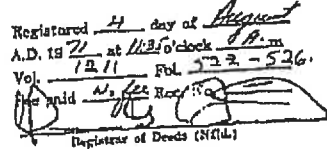 Registered 4 day of August
A.D. 1971 at 11:35 o'clock A.m
Vol. 1211 Fol. 522 - 526.
Fee paid no fee Rec. No.
Registrar of Deeds (Nfld.)